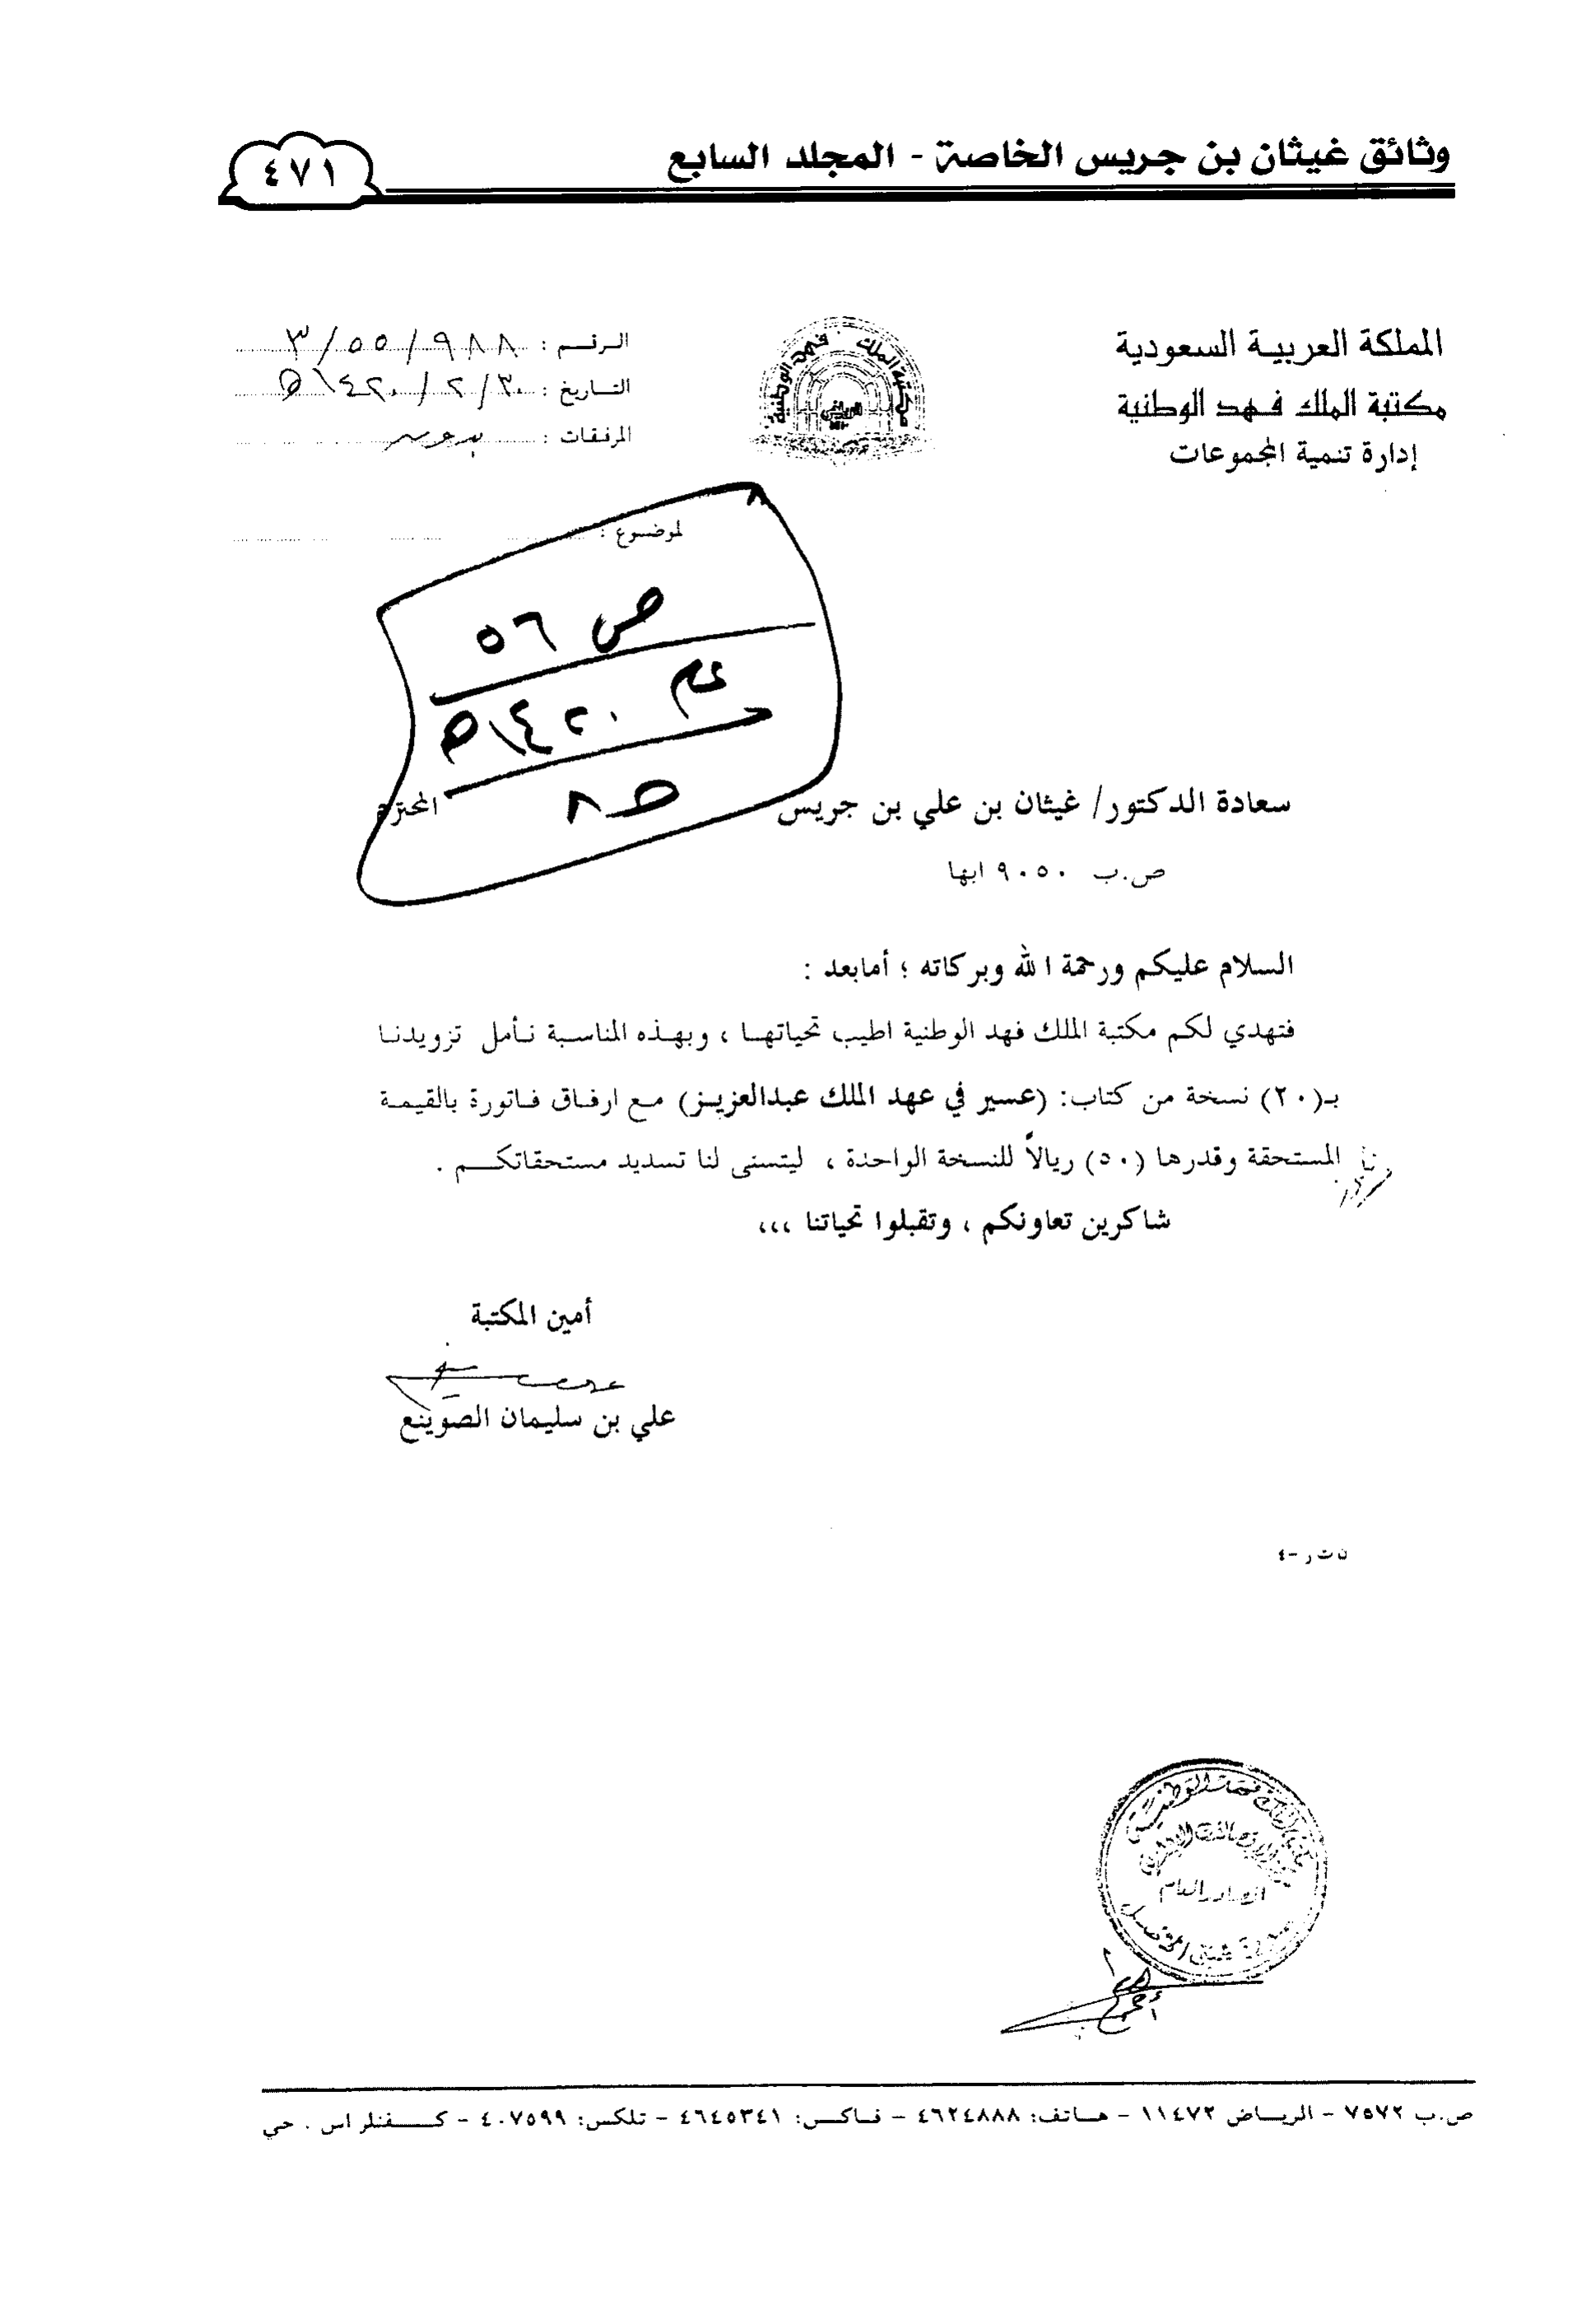 وثائق غيثان بن جريس الخاصة - المجلد السابع
٤٧١
المملكة العربية السعودية
مكتبة الملك فهد الوطنية
إدارة تنمية المجموعات
مكتبة الملك فهد الوطنية
الرياض
الرقم : ٣/٥٥/٩٨٨
التاريخ : ٣٠/٢/١٤٢٠هـ
المرفقات : بدون
لموضوع :
ص ٥٦
عام ١٤٢٠هـ
ص ٨
سعادة الدكتور/ غيثان بن علي بن جريس المحترم
ص.ب ٩٠٥٠ ابها
السلام عليكم ورحمة الله وبركاته ؛ أمابعد :
فتهدي لكم مكتبة الملك فهد الوطنية اطيب تحياتها ، وبهذه المناسبة نأمل تزويدنا
بـ(٢٠) نسخة من كتاب: (عسير في عهد الملك عبدالعزيز) مع ارفاق فاتورة بالقيمة
المستحقة وقدرها (٥٠) ريالاً للنسخة الواحدة ، ليتسنى لنا تسديد مستحقاتكم .
شاكرين تعاونكم ، وتقبلوا تحياتنا ،،،
أمين المكتبة
علي بن سليمان الصوينع
ن ت ر -٤
ص.ب ٧٥٧٢ - الرياض ١١٤٧٢ - هاتف: ٤٦٢٤٨٨٨ - فاكس: ٤٦٤٥٣٤١ - تلكس: ٤٠٧٥٩٩ - كفنلر اس . جي